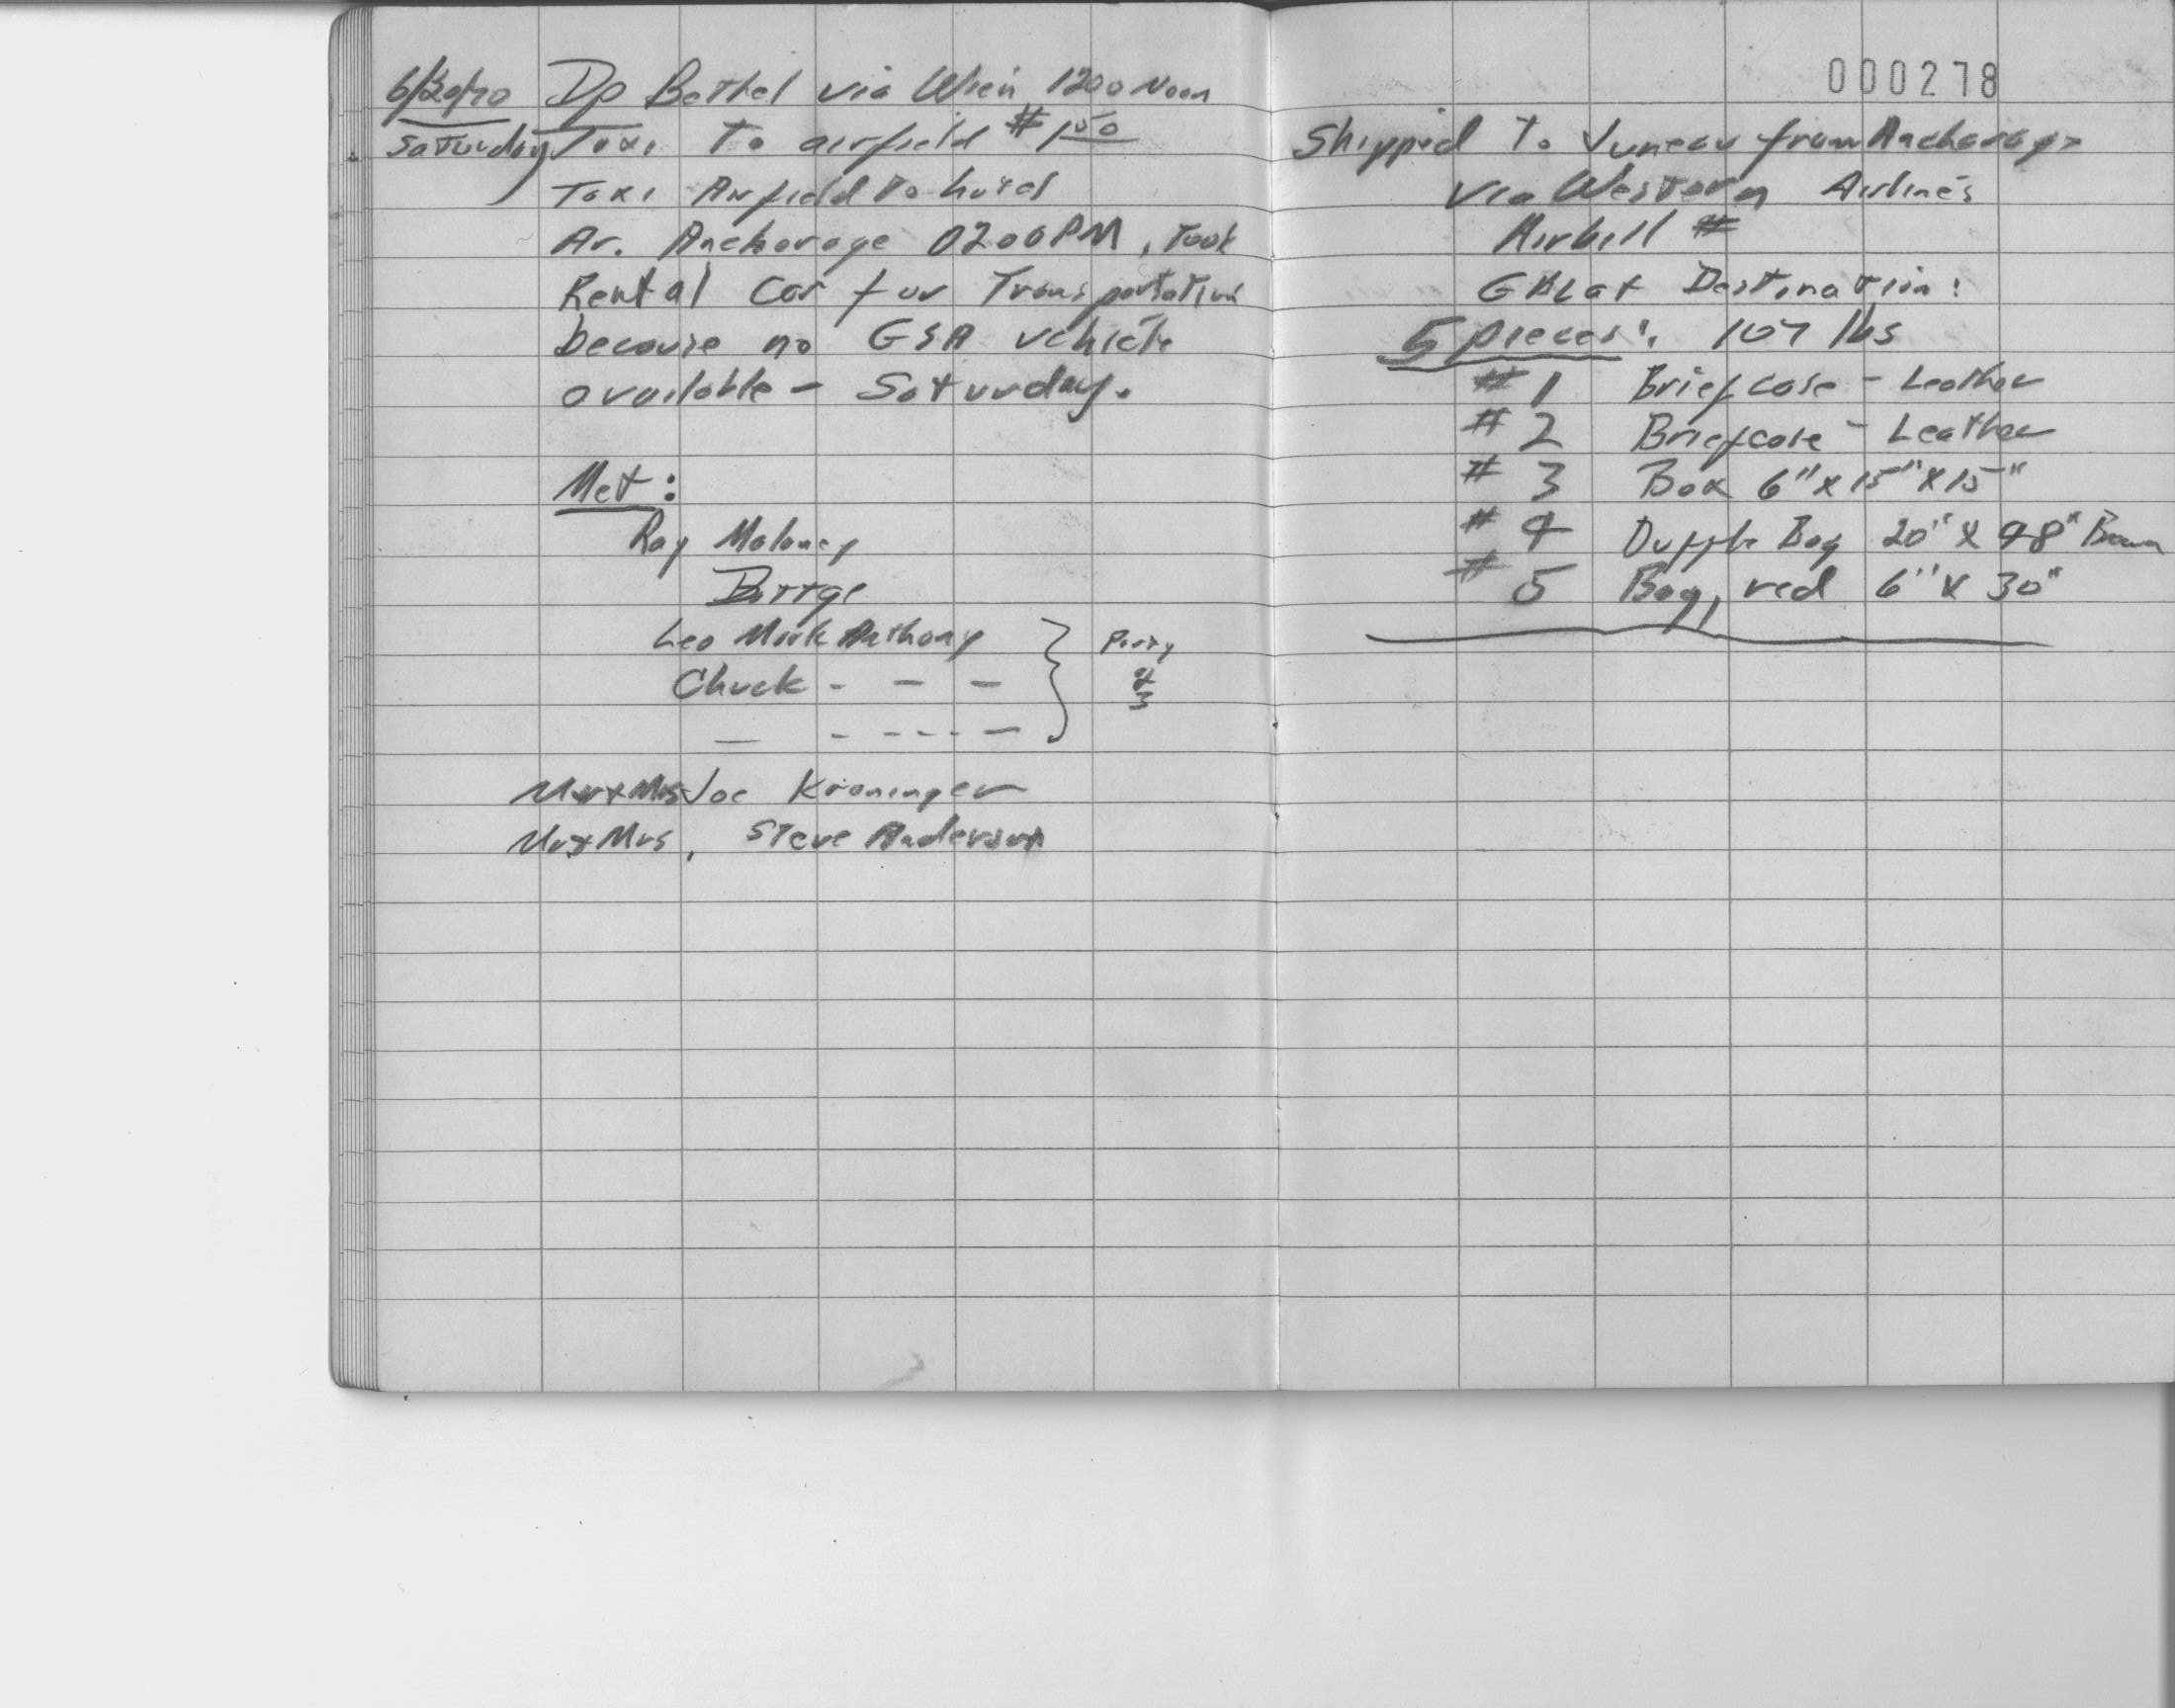 6/20/70 Dp Bethel via Wien 1200 Noon
Saturday Taxi to airfield $1.50
Taxi Airfield to hotel
Ar. Anchorage 0200PM, took
Rental Car for Transportation
because no GSA vehicle
available - Saturday.
Met:
Ray Maloney
Leo Mark Anthony
Chuck - - -
Party
3
Mr + Mrs Joe Kroninger
Mr + Mrs, Steve Anderson
000278
Shipped to Juneau from Anchorage
Via Western Airlines
Airbill #
GBL at Destination:
5 pieces: 107 lbs
#1 Briefcase - Leather
#2 Briefcase - Leather
#3 Box 6" x 15" x 15"
#4 Duffle Bag 20" x 48" Brown
#5 Bag, red 6" x 30"